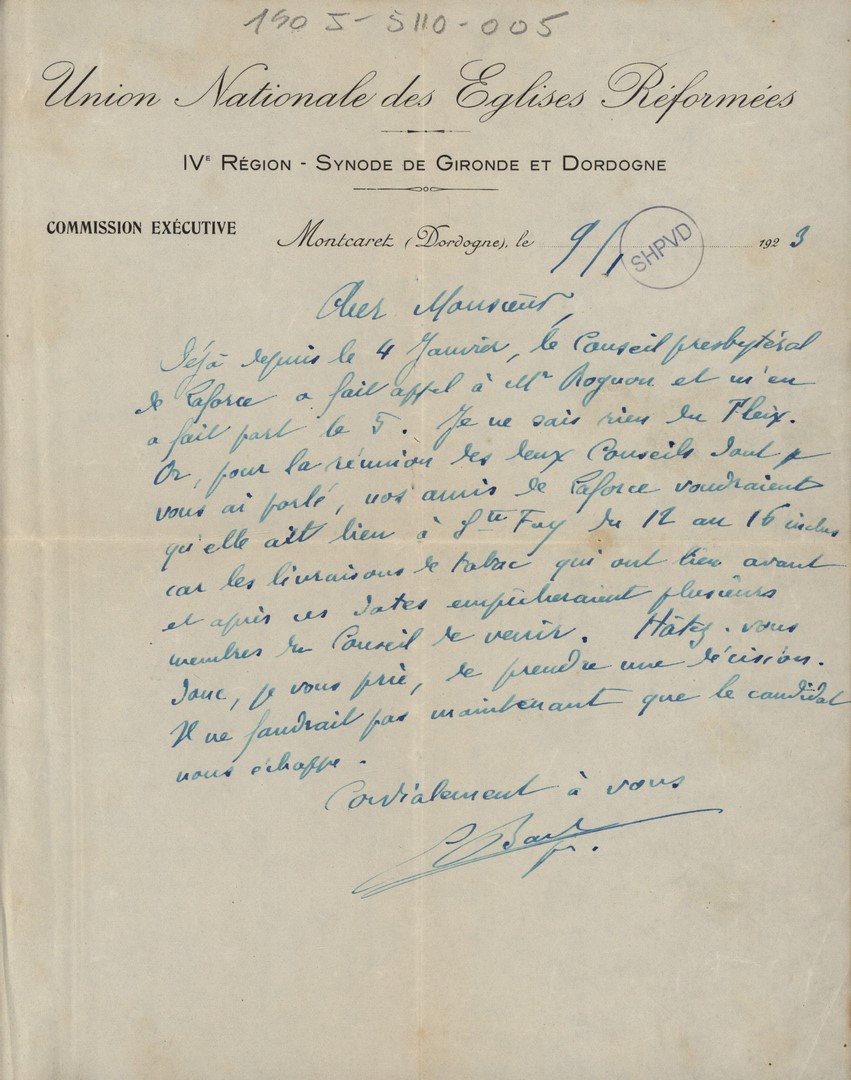 1905-5110-005
Union Nationale des Eglises Réformées
IVE RÉGION - SYNODE DE GIRONDE ET DORDOGNE
COMMISSION EXÉCUTIVE
Montcaret (Dordogne), le 9/1 1923
SHPVD
Cher Monsieur,
Déjà depuis le 4 Janvier, le Conseil presbytéral
de Laforce a fait appel à Mr Rognon et m'en
a fait part le 5. Je ne sais rien du Fleix.
Or, pour la réunion des deux Conseils dont je
vous ai parlé, nos amis de Laforce voudraient
qu'elle ait lieu à Ste Foy du 12 au 16 inclus
car les livraisons de tabac qui ont lieu avant
et après ces dates empêcheraient plusieurs
membres du Conseil de venir. Hâtez-vous
donc, je vous prie, de prendre une décision.
Il ne faudrait pas maintenant que le candidat
nous échappe.
Cordialement à vous